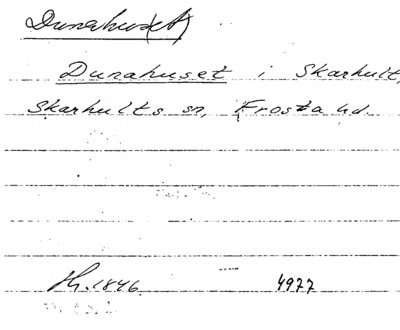 Dunahus(et)
Dunahuset i Skarhult,
Skarhults sn, Frosta hd.
Hfl. 1846. 4977